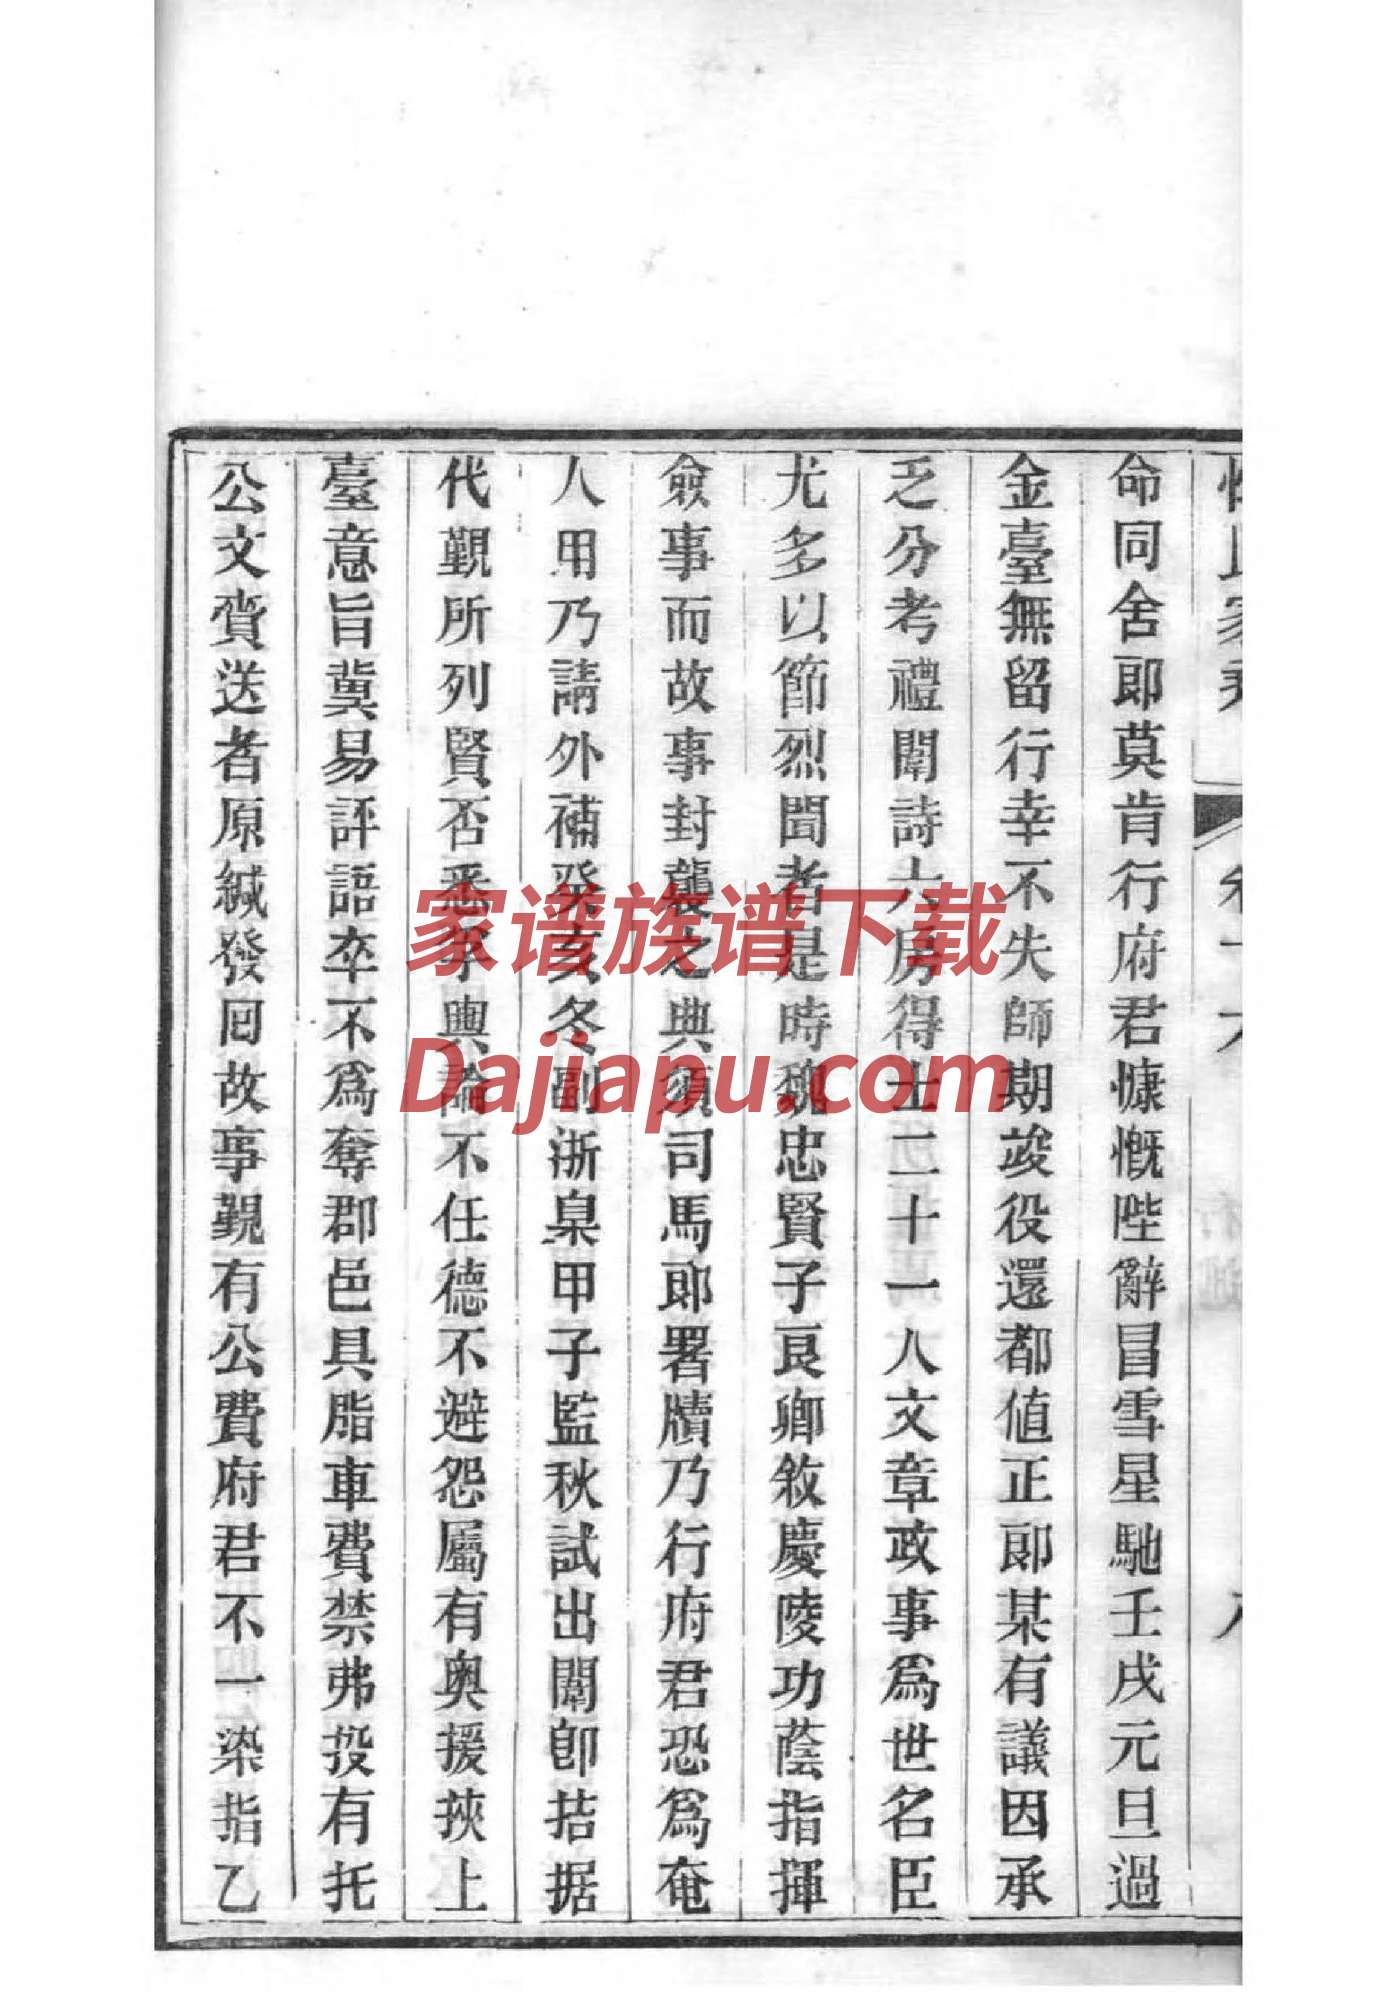 命同舍郎莫肯行府君慷慨陛辭冒雪星馳壬戌元旦過
金臺無留行幸不失師期竣役還都値正郎某有議因承
乏分考禮闈詩六房得士二十一人文章政事爲世名臣
尤多以節烈聞者是時魏忠賢子良卿敘慶陵功蔭指揮
僉事而故事封襲之典須司馬郎署牘乃行府君恐爲奄
人用乃請外補癸亥冬副浙臬甲子監秋試出闈卽拮据
代覲所列賢否悉孚輿論不任德不避怨屬有奥援挾上
臺意旨冀易評語卒不爲奪郡邑具脂車費禁弗投有托
公文賫送者原緘發回故事覲有公費府君不一染指乙
家谱族谱下载
Dajiapu.com